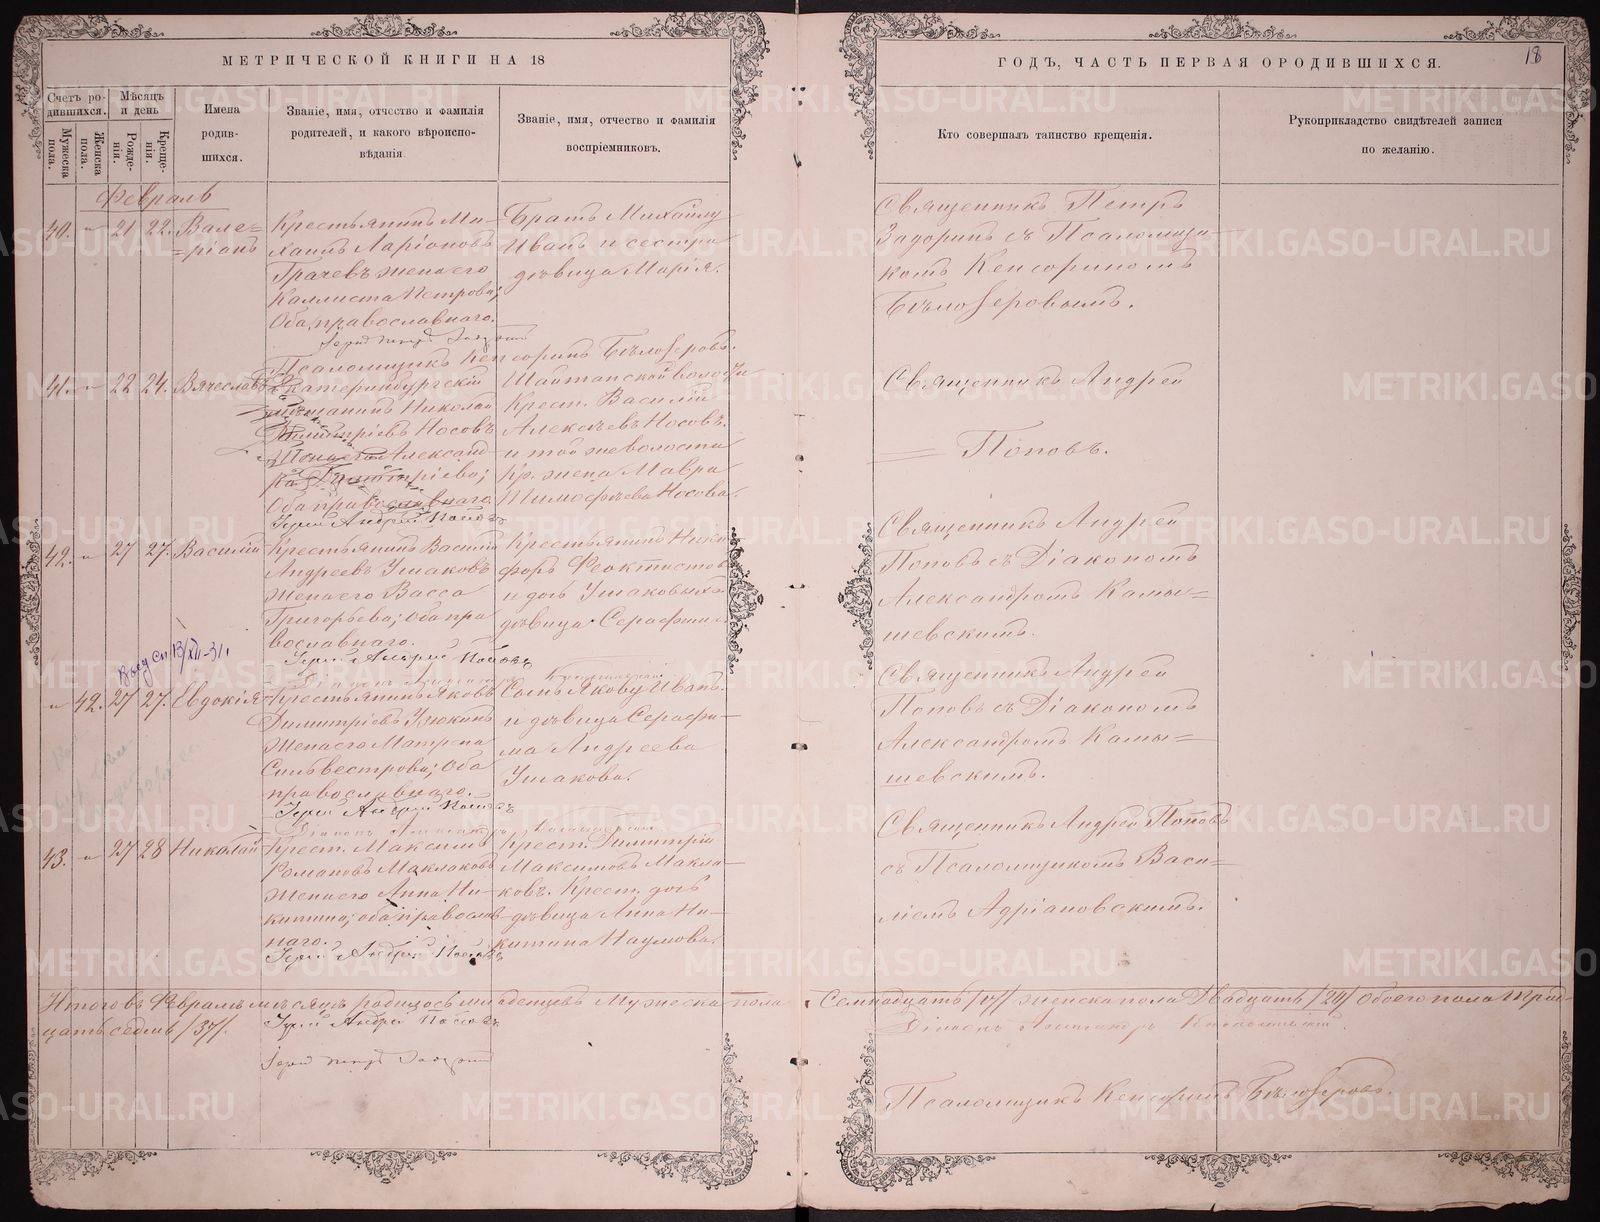 МЕТРИЧЕСКОЙ КНИГИ НА 18
ГОДЪ, ЧАСТЬ ПЕРВАЯ О РОДИВШИХСЯ.
18
Счетъ родившихся.
Мужеска пола.
Женска пола.
Мѣсяцъ и день
Рожденія.
Крещенія.
Имена родившихся.
Званіе, имя, отчество и фамилія
родителей, и какого вѣроиспо-
вѣданія
Званіе, имя, отчество и фамилія
воспріемниковъ.
Кто совершалъ таинство крещенія.
Рукоприкладство свидѣтелей записи
по желанію.
Февраль
40. „ 21 22. Вале=
=ріанъ
Крестьянинъ Ми-
хаилъ Ларіоновъ
Грачевъ жена его
Каллиста Петрова;
Оба православнаго.
Братъ Михаилу
Иванъ и сестра
дѣвица Марія.
Священникъ Петръ
Задоринъ съ Псаломщи-
комъ Кенсориномъ
Бѣлозеровымъ.
Псаломщикъ Кенсоринъ Бѣлозеровъ.
41. „ 22 24. Вячеславъ
Екатеринбургскій
мѣщанинъ Николай
Димитріевъ Носовъ
Александ-
Оба православнаго
Іерей Андрей Поповъ
Шайтанской волости
Крест. Василій
Алексѣевъ Носовъ.
и той же волости
Кр. жена Мавра
Тимофѣева Носова.
Священникъ Андрей
Поповъ.
42. „ 27 27. Василій
Крестьянинъ Василій
Андреевъ Ушаковъ
жена его Васса
Григорьева; оба пра
вославнаго.
Іерей Андрей Поповъ
Крестьянинъ Ники-
форъ Феоктистовъ
и дочь Ушаковыхъ
дѣвица Серафима
Священникъ Андрей
Поповъ съ Діакономъ
Александромъ Камы=
шевскимъ.
„ 42. 27 27. Евдокія
Крестьянинъ Яковъ
Димитріевъ Узюкинъ
жена его Матрона
Сильвестрова; Оба
православнаго.
Іерей Андрей Поповъ
Сынъ Якову Иванъ
и дѣвица Серафи-
ма Андреева
Ушакова.
Священникъ Андрей
Поповъ съ Діакономъ
Александромъ Камы=
шевскимъ.
43. „ 27 28 Николай
Крест. Максимъ
Романовъ Маклаковъ
жена его Анна Ни-
китина; оба православ-
наго.
Іерей Андрей Поповъ
Крест. Димитрій
Максимовъ Макла-
ковъ. Крест. дочь
дѣвица Анна Ни-
китина Наумова.
Священникъ Андрей Поповъ
съ Псаломщикомъ Васи=
ліемъ Адріановскимъ.
Итого въ Февралѣ мѣсяцѣ родилось младенцевъ Мужеска пола Семнадцать /17/ женска пола Двадцать /20/ Обоего пола Трид-
цать седмь /37/.
Іерей Андрей Поповъ
Псаломщикъ Кенсоринъ Бѣлозеровъ.
METRIKI.GASO-URAL.RU